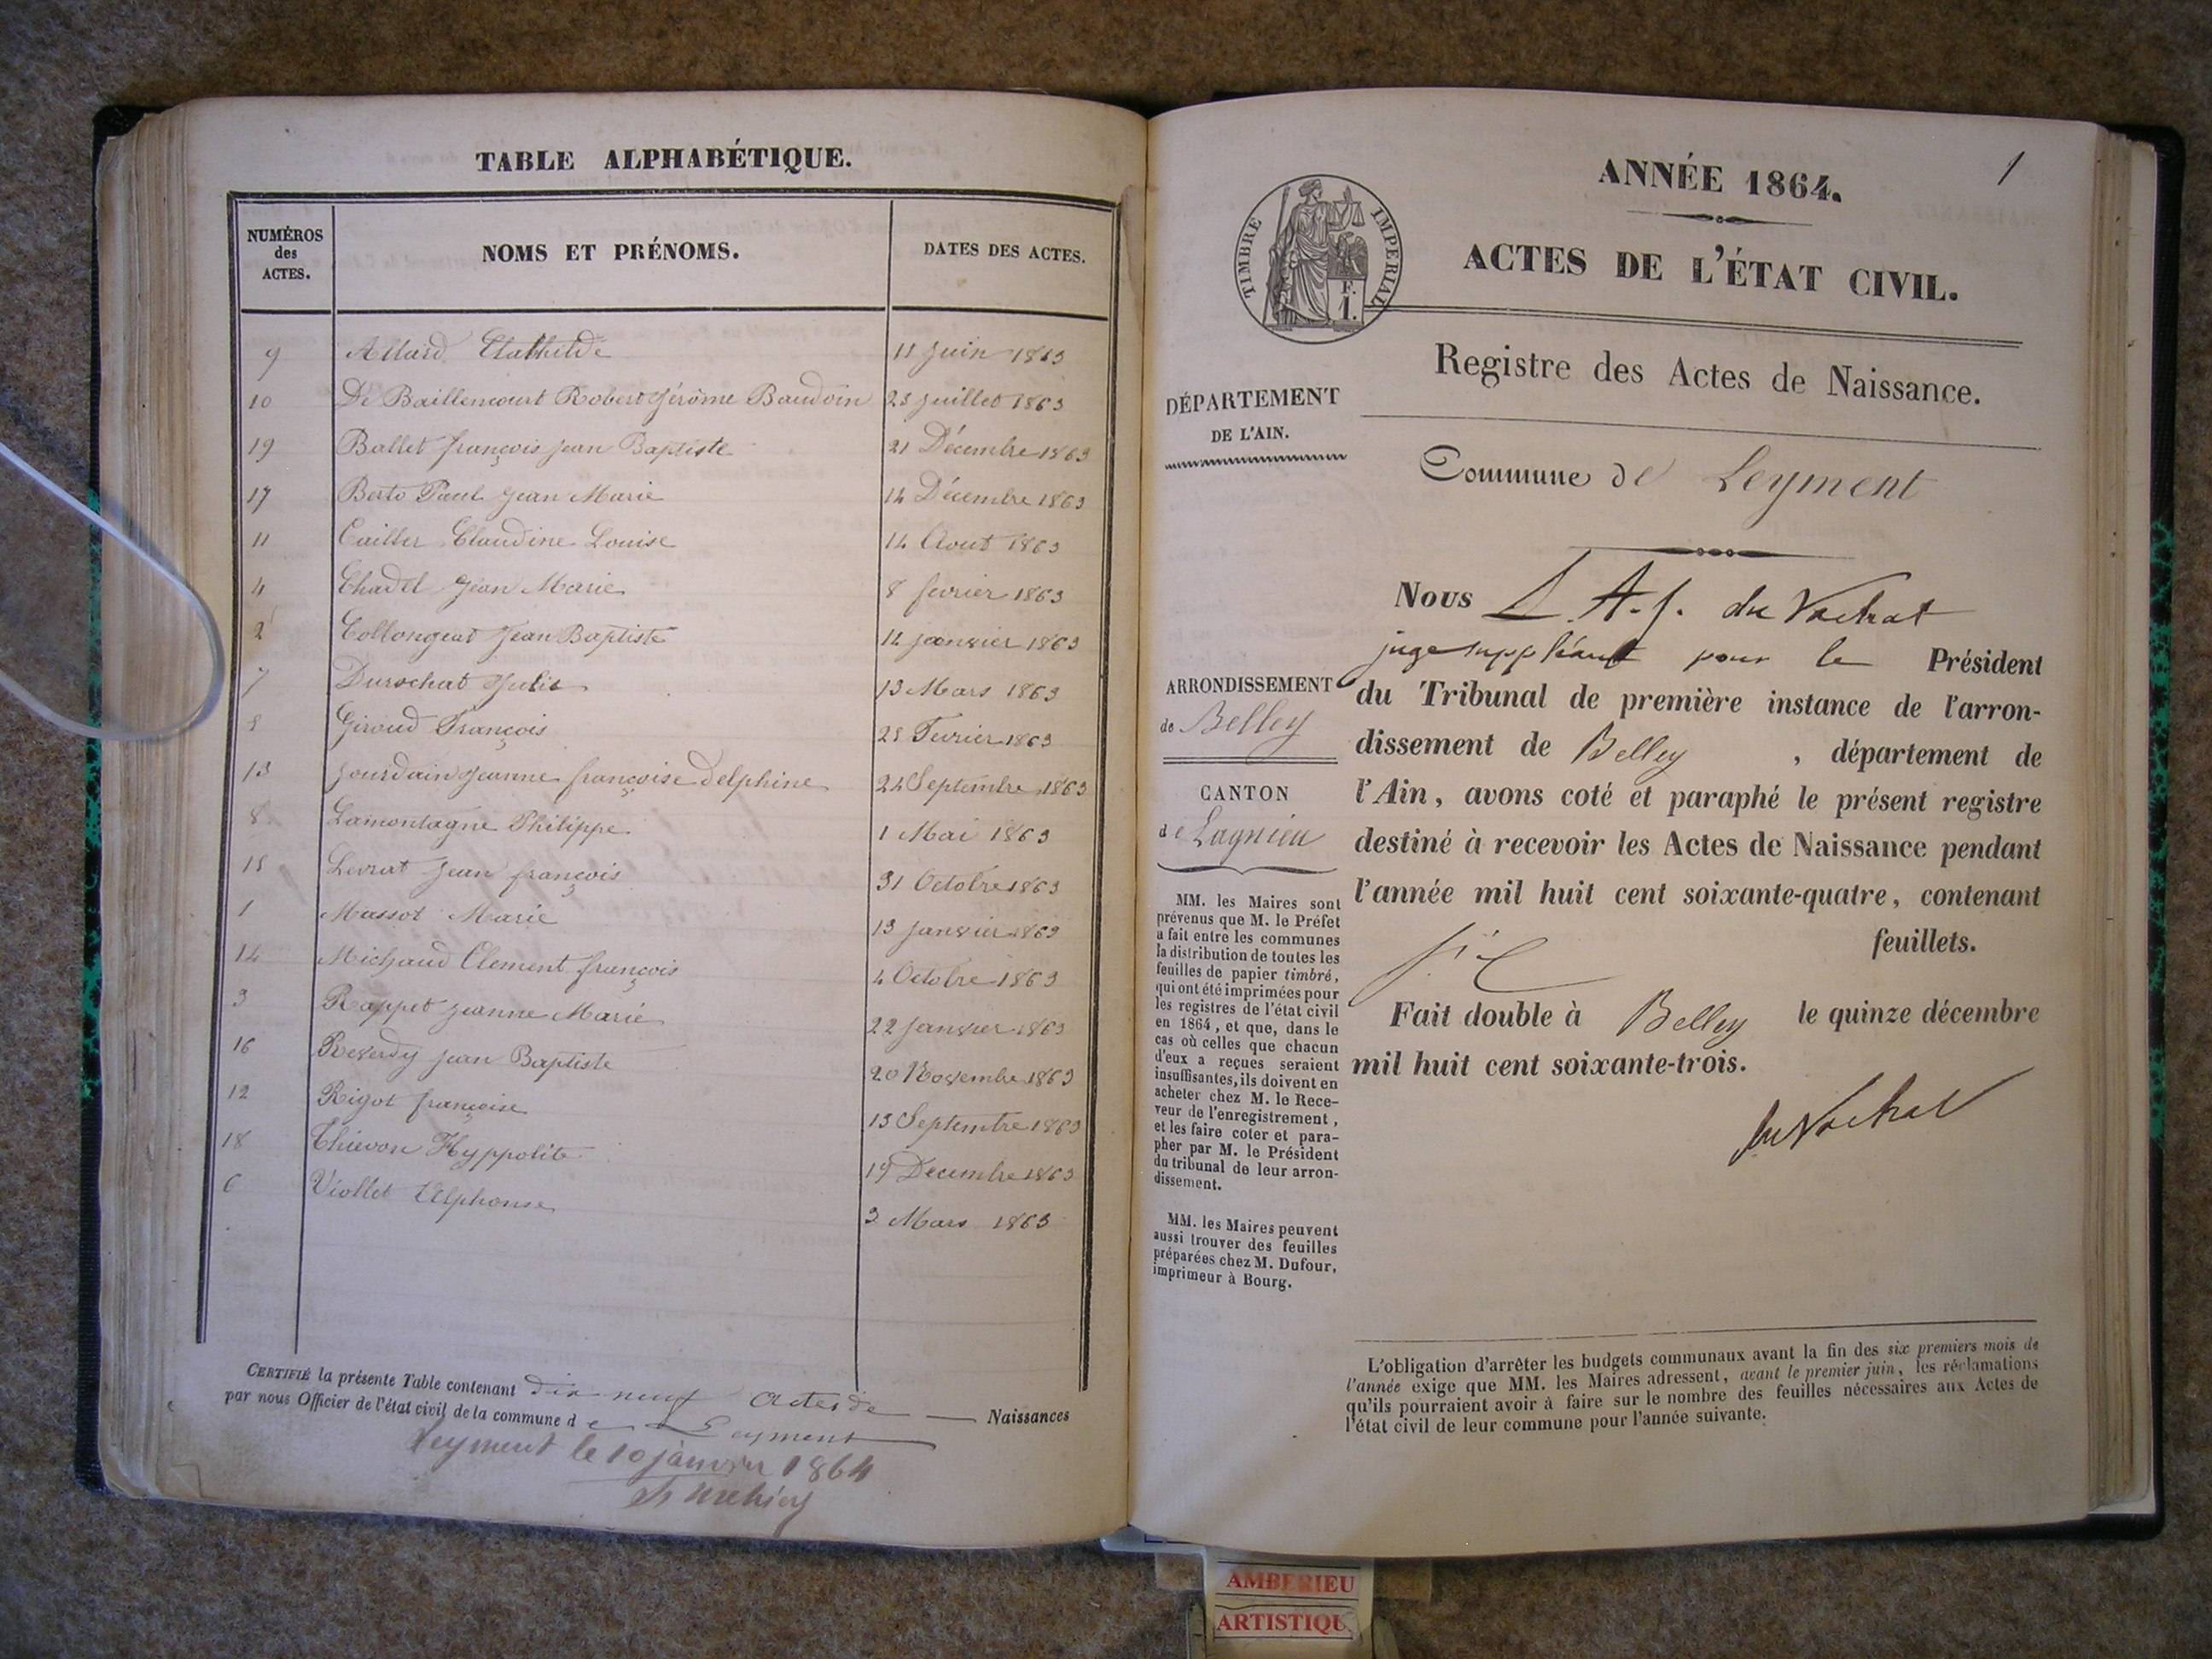 TABLE ALPHABÉTIQUE.
NUMÉROS
des
ACTES.
NOMS ET PRÉNOMS.
DATES DES ACTES.
9 Allard Clathilde 11 Juin 1863
10 De Baillencourt Robert Jérôme Baudoin 25 Juillet 1863
19 Ballet françois Jean Baptiste 21 Décembre 1863
17 Berto Paul Jean Marie 14 Décembre 1863
11 Cailler Claudine Louise 14 Aout 1863
4 Chadel Jean Marie 8 fevrier 1863
2 Collongeat Jean Baptiste 14 janvier 1863
7 Durochat Julie 13 Mars 1863
Giroud François 25 Fevrier 1863
13 Jourdain Jeanne françoise Delphine 24 Septembre 1863
8 Lamontagne Philippe 1 Mai 1863
15 Levrat Jean françois 31 Octobre 1863
1 Massot Marie 13 Janvier 1863
14 Michaud Clement françois 4 Octobre 1863
3 Rappet Jeanne Marie 22 Janvier 1863
16 Reverdy Jean Baptiste 20 Novembre 1863
12 Rigot françoise 13 Septembre 1863
18 Thievon Hyppolite 19 Decembre 1863
6 Viollet Alphonse 3 Mars 1863
CERTIFIÉ la présente Table contenant dix neuf Actes de Naissances
par nous Officier de l'état civil de la commune de Leyment
Leyment le 10 janvier 1864
1
ANNÉE 1864.
TIMBRE IMPERIAL
F.
1.
ACTES DE L'ÉTAT CIVIL.
Registre des Actes de Naissance.
DÉPARTEMENT
DE L'AIN.
Commune de Leyment
Nous L. A. J. du Vachat
juge suppléant pour le Président
du Tribunal de première instance de l'arron-
dissement de Belley, département de
l'Ain, avons coté et paraphé le présent registre
destiné à recevoir les Actes de Naissance pendant
l'année mil huit cent soixante-quatre, contenant
feuillets.
Fait double à Belley le quinze décembre
mil huit cent soixante-trois.
du Vachat
ARRONDISSEMENT
de Belley
CANTON
de Lagnieu
MM. les Maires sont
prévenus que M. le Préfet
a fait entre les communes
la distribution de toutes les
feuilles de papier timbré,
qui ont été imprimées pour
les registres de l'état civil
en 1864, et que, dans le
cas où celles que chacun
d'eux a reçues seraient
insuffisantes, ils doivent en
acheter chez M. le Rece-
veur de l'enregistrement,
et les faire coter et para-
pher par M. le Président
du tribunal de leur arron-
dissement.
MM. les Maires peuvent
aussi trouver des feuilles
préparées chez M. Dufour,
imprimeur à Bourg.
L'obligation d'arrêter les budgets communaux avant la fin des six premiers mois de
l'année exige que MM. les Maires adressent, avant le premier juin, les réclamations
qu'ils pourraient avoir à faire sur le nombre des feuilles nécessaires aux Actes de
l'état civil de leur commune pour l'année suivante.
AMBERIEU
ARTISTIQU